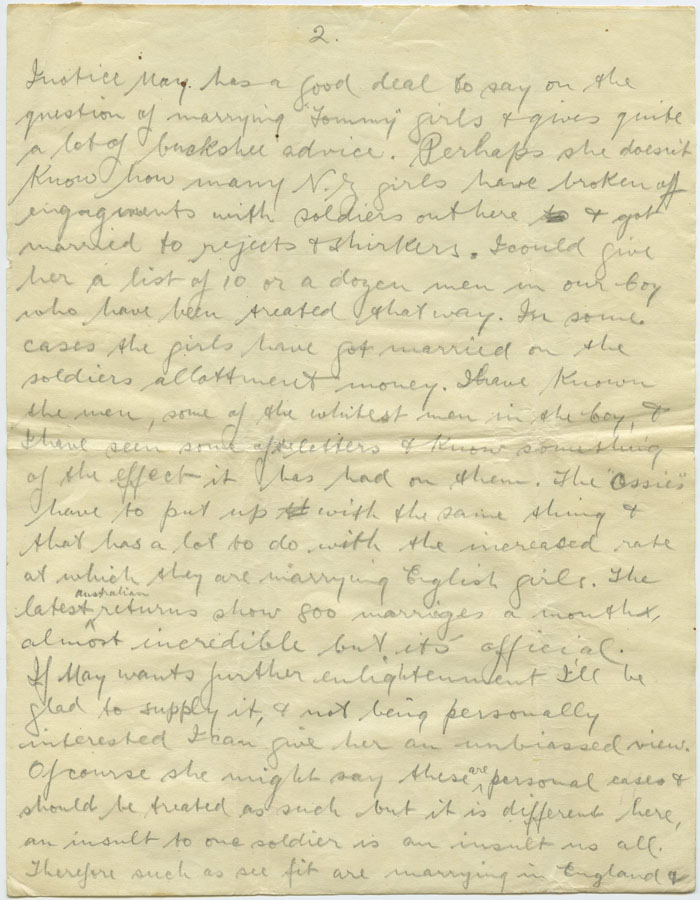 2.
I notice May has a good deal to say on the
question of marrying "Tommy" girls & gives quite
a lot of buckshee advice. Perhaps she doesn't
know how many N.Z girls have broken off
engagments with soldiers out here to & got
married to rejects & shirkers. I could give
her a list of 10 or a dozen men in our Coy
who have been treated that way. In some
cases the girls have got married on the
soldiers allottment money. I have known
the men, some of the whitest men in the Coy, &
I have seen some of the letters & know something
of the effect it has had on them. The "Ossies"
have to put up with the same thing &
that has a lot to do with the increased rate
at which they are marrying English girls. The
latest australian returns show 800 marriages a month,
almost incredible but its official.
If May wants further enlightenment I'll be
glad to supply it, & not being personally
interested I can give her an unbiassed view.
Of course she might say these are personal cases &
should be treated as such but it is different here,
an insult to one soldier is an insult us all.
Therefore such as see fit are marrying in England &